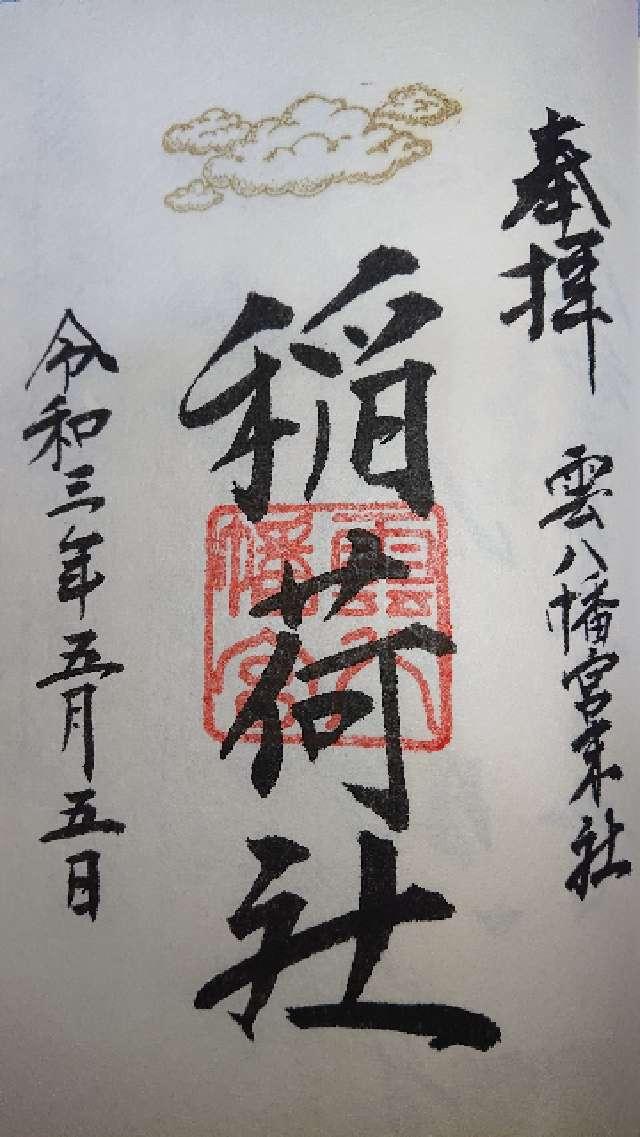 奉拝
雲八幡宮末社
稲荷社
雲八幡宮
令和三年五月五日